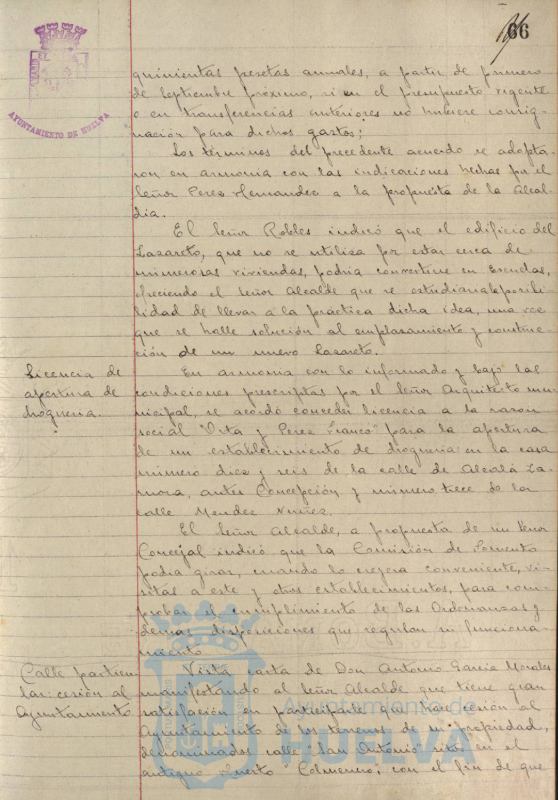 66
AYUNTAMIENTO DE HUELVA
quinientas pesetas anuales, a partir de primero
de Septiembre próximo, si en el presupuesto vigente
o en transferencias anteriores no hubiere consig-
nación para dichos gastos;
Los términos del precedente acuerdo se adopta-
ron en armonía con las indicaciones hechas por el
Señor Perez Hernandez a la propuesta de la Alcal-
día.
El Señor Robles indicó que el edificio del
Lazareto, que no se utiliza por estar cerca de
numerosas viviendas, podria convertirse en Escuelas,
ofreciendo el Señor Alcalde que se estudiaria la posibi-
lidad de llevar a la práctica dicha idea, una vez
que se halle solución al emplazamiento y construc-
ción de un nuevo Lazareto.
Licencia de
apertura de
droguería.
En armonia con lo informado y bajo las
condiciones prescriptas por el Señor Arquitecto mu-
nicipal, se acordó conceder licencia a la razon
social "Orta y Perez Franco" para la apertura
de un establecimiento de drogueria en la casa
número diez y seis de la calle de Alcalá Za-
mora, antes Concepción y número trece de la
calle Mendez Nuñez.
El Señor Alcalde, a propuesta de un Señor
Concejal indicó que la Comisión de Fomento
podia girar, cuando lo creyera conveniente, vi-
sitas a este y otros establecimientos, para com-
probar el cumplimiento de las Ordenanzas y
demas disposiciones que regulan su funciona-
miento.
Calle particu-
lar: cesión al
Ayuntamiento
Vista carta de Don Antonio Garcia Morales
manifestando al Señor Alcalde que tiene gran
satisfacción en participarle que hace cesión al
Ayuntamiento de los terrenos de su propiedad,
denominados calle "San Antonio" sitos en el
antiguo Huerto "Colmenero", con el fin de que
Ayuntamiento de
HUELVA